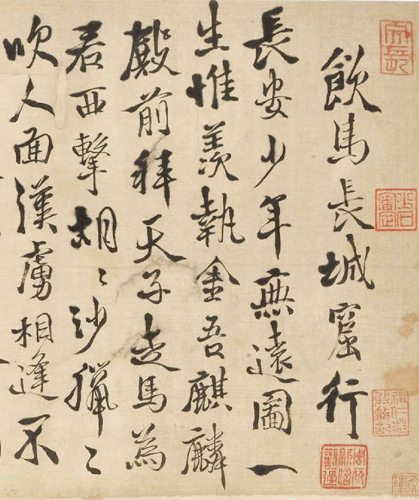 飲馬長城窟行
長安少年無遠圖一
生惟羨執金吾麒麟
殿前拜天子走馬為
君西擊胡〻沙獵〻
吹人面漢虜相逢不